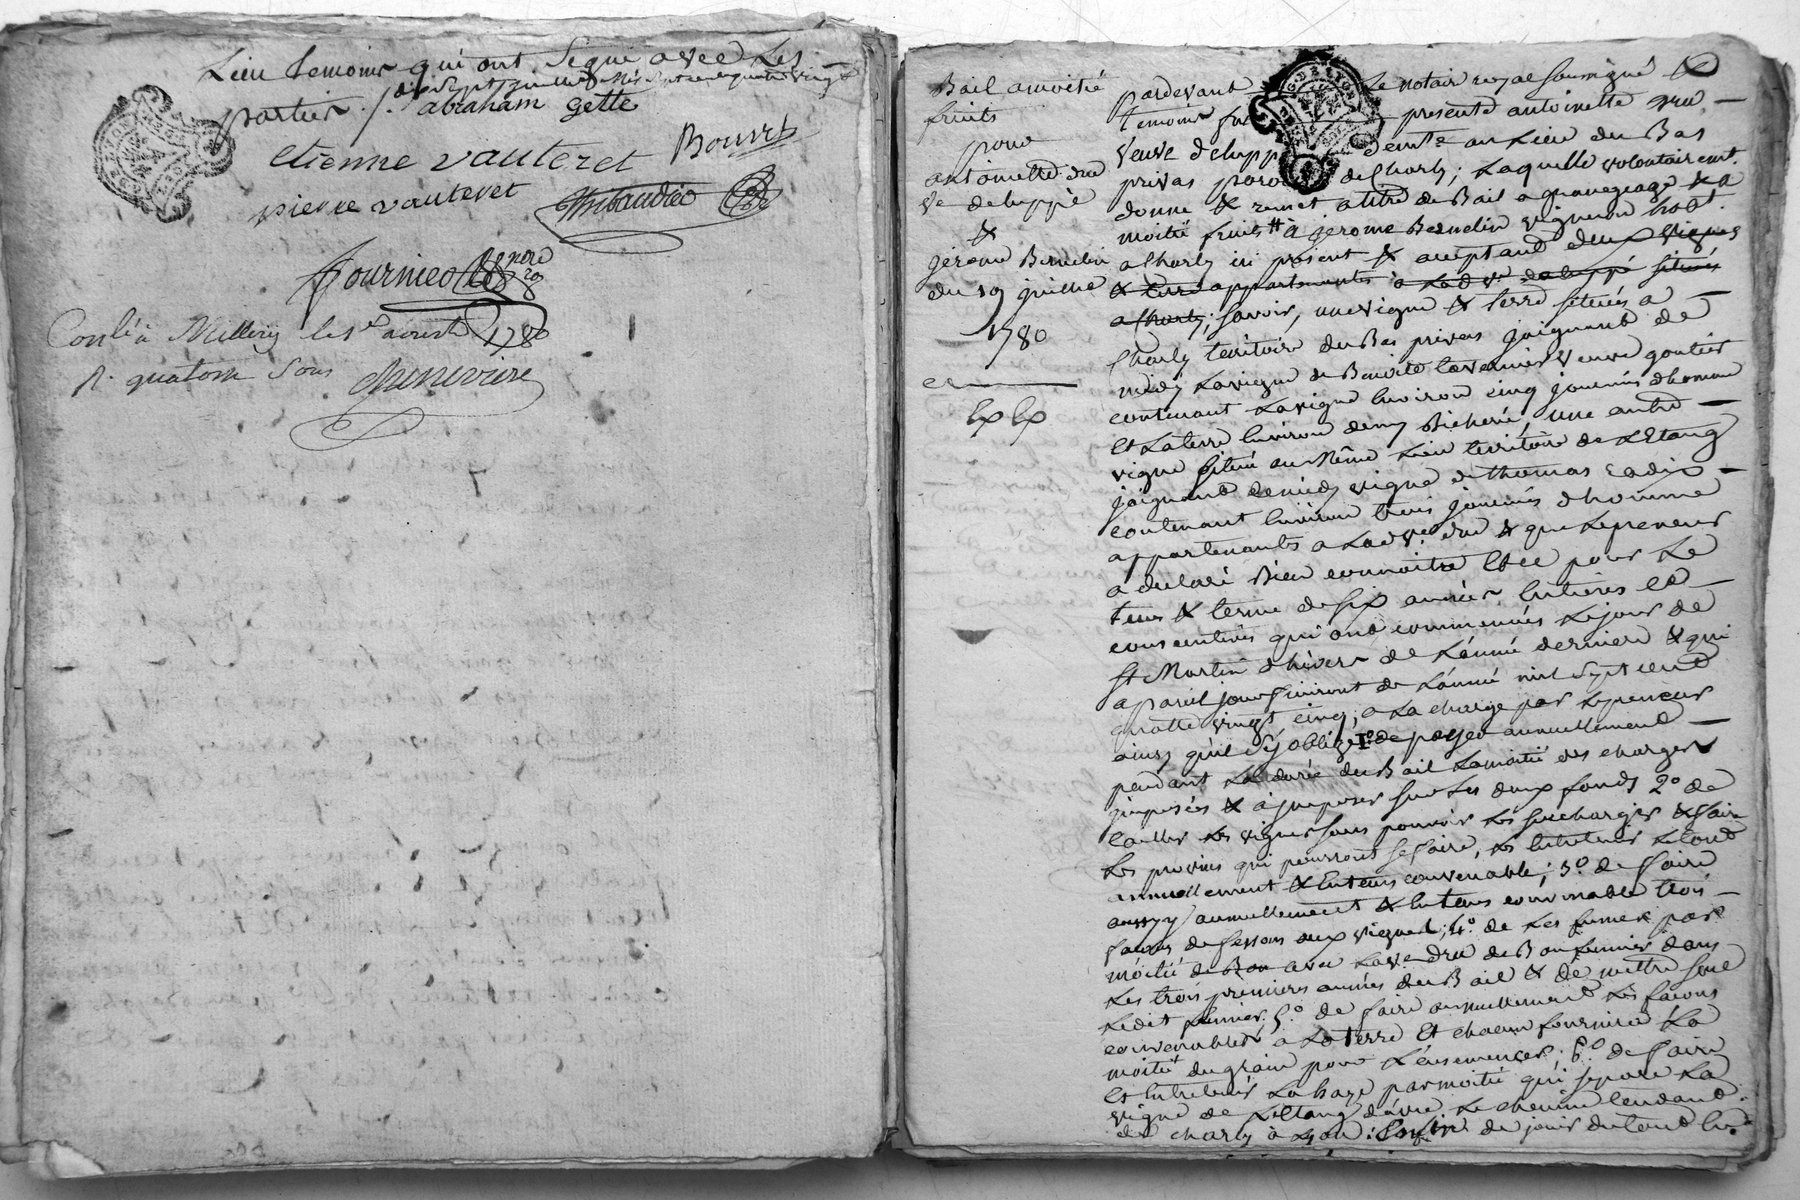 Lieu temoins qui ont Signé avec Les
parties /. dix Sept juillet mil Sept cent quatre vingt
abraham gette
etienne vauteret Bouvet
pierre vauteret Thibaudier
fournereau
Conlé à Millery le 1er aoust 1780
R. quatorze Sous Chenevière
Bail amoitié
fruits
pour
antoinette dru
ve dehuppé
&
jerome Bernelin
du 19 juillet
1780
Pardevant Le notair royal soussigné &
temoins fut présente antoinette dru
veuve dehuppé demte au Lieu du Bas
privas paroisse de Charly; Laquelle volontairemt.
donne & remet atitre de Bail a grangeage & a
moitié fruits # à jerome Bernelin vigneron habt.
a Charly ici présent & acceptant deux vignes
& terre appartenantes a Lad ve dehuppé situés
a Charly; savoir, une vigne & terre situés a
Charly territoire du Bas privas joignant de
midy Lavigne de Benoite veuve goutier
contenant Lavigne Environ cinq journées dhomme
Et Laterre Environ demy Bicherée, une autre
vigne située au Même Lieu territoire de LEtang
joignant demidy vigne de thomas Cadix
contenant Environ trois journées dhomme
appartenantes a Lade ve dru & que Lepreneur
a déclaré Bien connoitre Et ce pour Le
tems & terme de six années Entieres et
consecutives qui ont commencées Lejour de
St Martin dhivers de Lannée derniere & qui
apareil jour finiront de Lannée mil Sept cent
quatre vingt cinq; a La charge par Lepreneur
ainsy qu'il s'y oblige 1° de payer annuellement
pendant La durée du Bail Lamoitié des charges
imposées & a imposer sur Les deux fonds 2° de
tailler Les vignes sans pouvoir Les surcharger & faire
Les provins qui pourront se faire, Les Entretenir Letout
annuellement & Entems convenable; 3° de faire
aussy annuellement & Entems convenable trois
façons de fessous aux vignes; 4° de Les fumer par
moitié de Bon avec Lave dru de Bon fumier dans
Les trois premieres années du Bail & de mettre seul
Ledit fumier; 5° de faire annuellement Les façons
convenables a La terre Et chacun fournira La
moitié du grain pour L'ensemencer; 6° de faire
Et Entretenir La haye par moitié qui separe La
vigne de LEtang d'avec Le chemin tendant
de charly à Lyon; Enfin de jouir du tout En